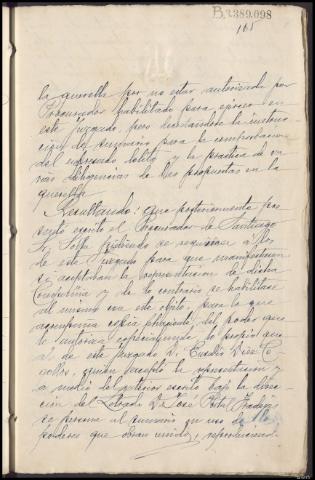 B.3.389.098
165
la querella por no estar autorizada por
Procurador habilitado para ejercer en
este juzgado, pero decretándose la instruc-
cion del sumario para la comprobacion
del expresado delito y la practica de va-
rias diligencias de las propuestas en la
querella.
Resultando: que posteriormente pre-
sentó escrito el Procurador de Santiago
pidiendo se requiriera a los
de este Juzgado para que manifestaran
si aceptaban la representacion de dicha
Compañia y de lo contrario se habilitase
al mismo con este objeto, para lo que
acompaña copia del poder que
lo autoriza el propio
de este juzgado D. Eusebio Diez
quien aceptó la representacion y
a medio del anterior escrito bajo la direc-
cion del Letrado D. José
se persona al sumario en uso de
poderes que obran unidos,